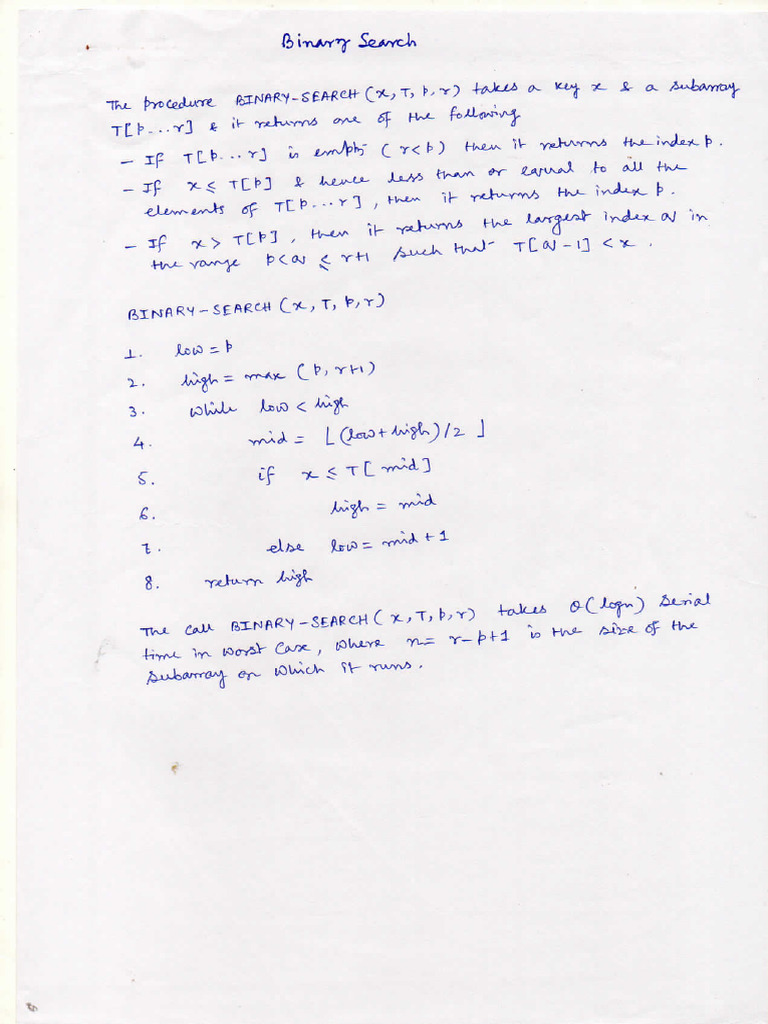 Binary Search
The procedure BINARY-SEARCH (x, T, p, r) takes a key x & a subarray
T[p...r] & it returns one of the following
- If T[p...r] is empty (r<p) then it returns the index p.
- If x ≤ T[p] & hence less than or equal to all the
elements of T[p...r], then it returns the index p.
- If x > T[p], then it returns the largest index q in
the range p<q ≤ r+1 such that T[q-1] < x.
BINARY-SEARCH (x, T, p, r)
1. low = p
2. high = max (p, r+1)
3. while low < high
4. mid = ⌊(low+high)/2⌋
5. if x ≤ T[mid]
6. high = mid
7. else low = mid+1
8. return high
The call BINARY-SEARCH (x, T, p, r) takes θ(logn) serial
time in worst case, where n = r-p+1 is the size of the
subarray on which it runs.